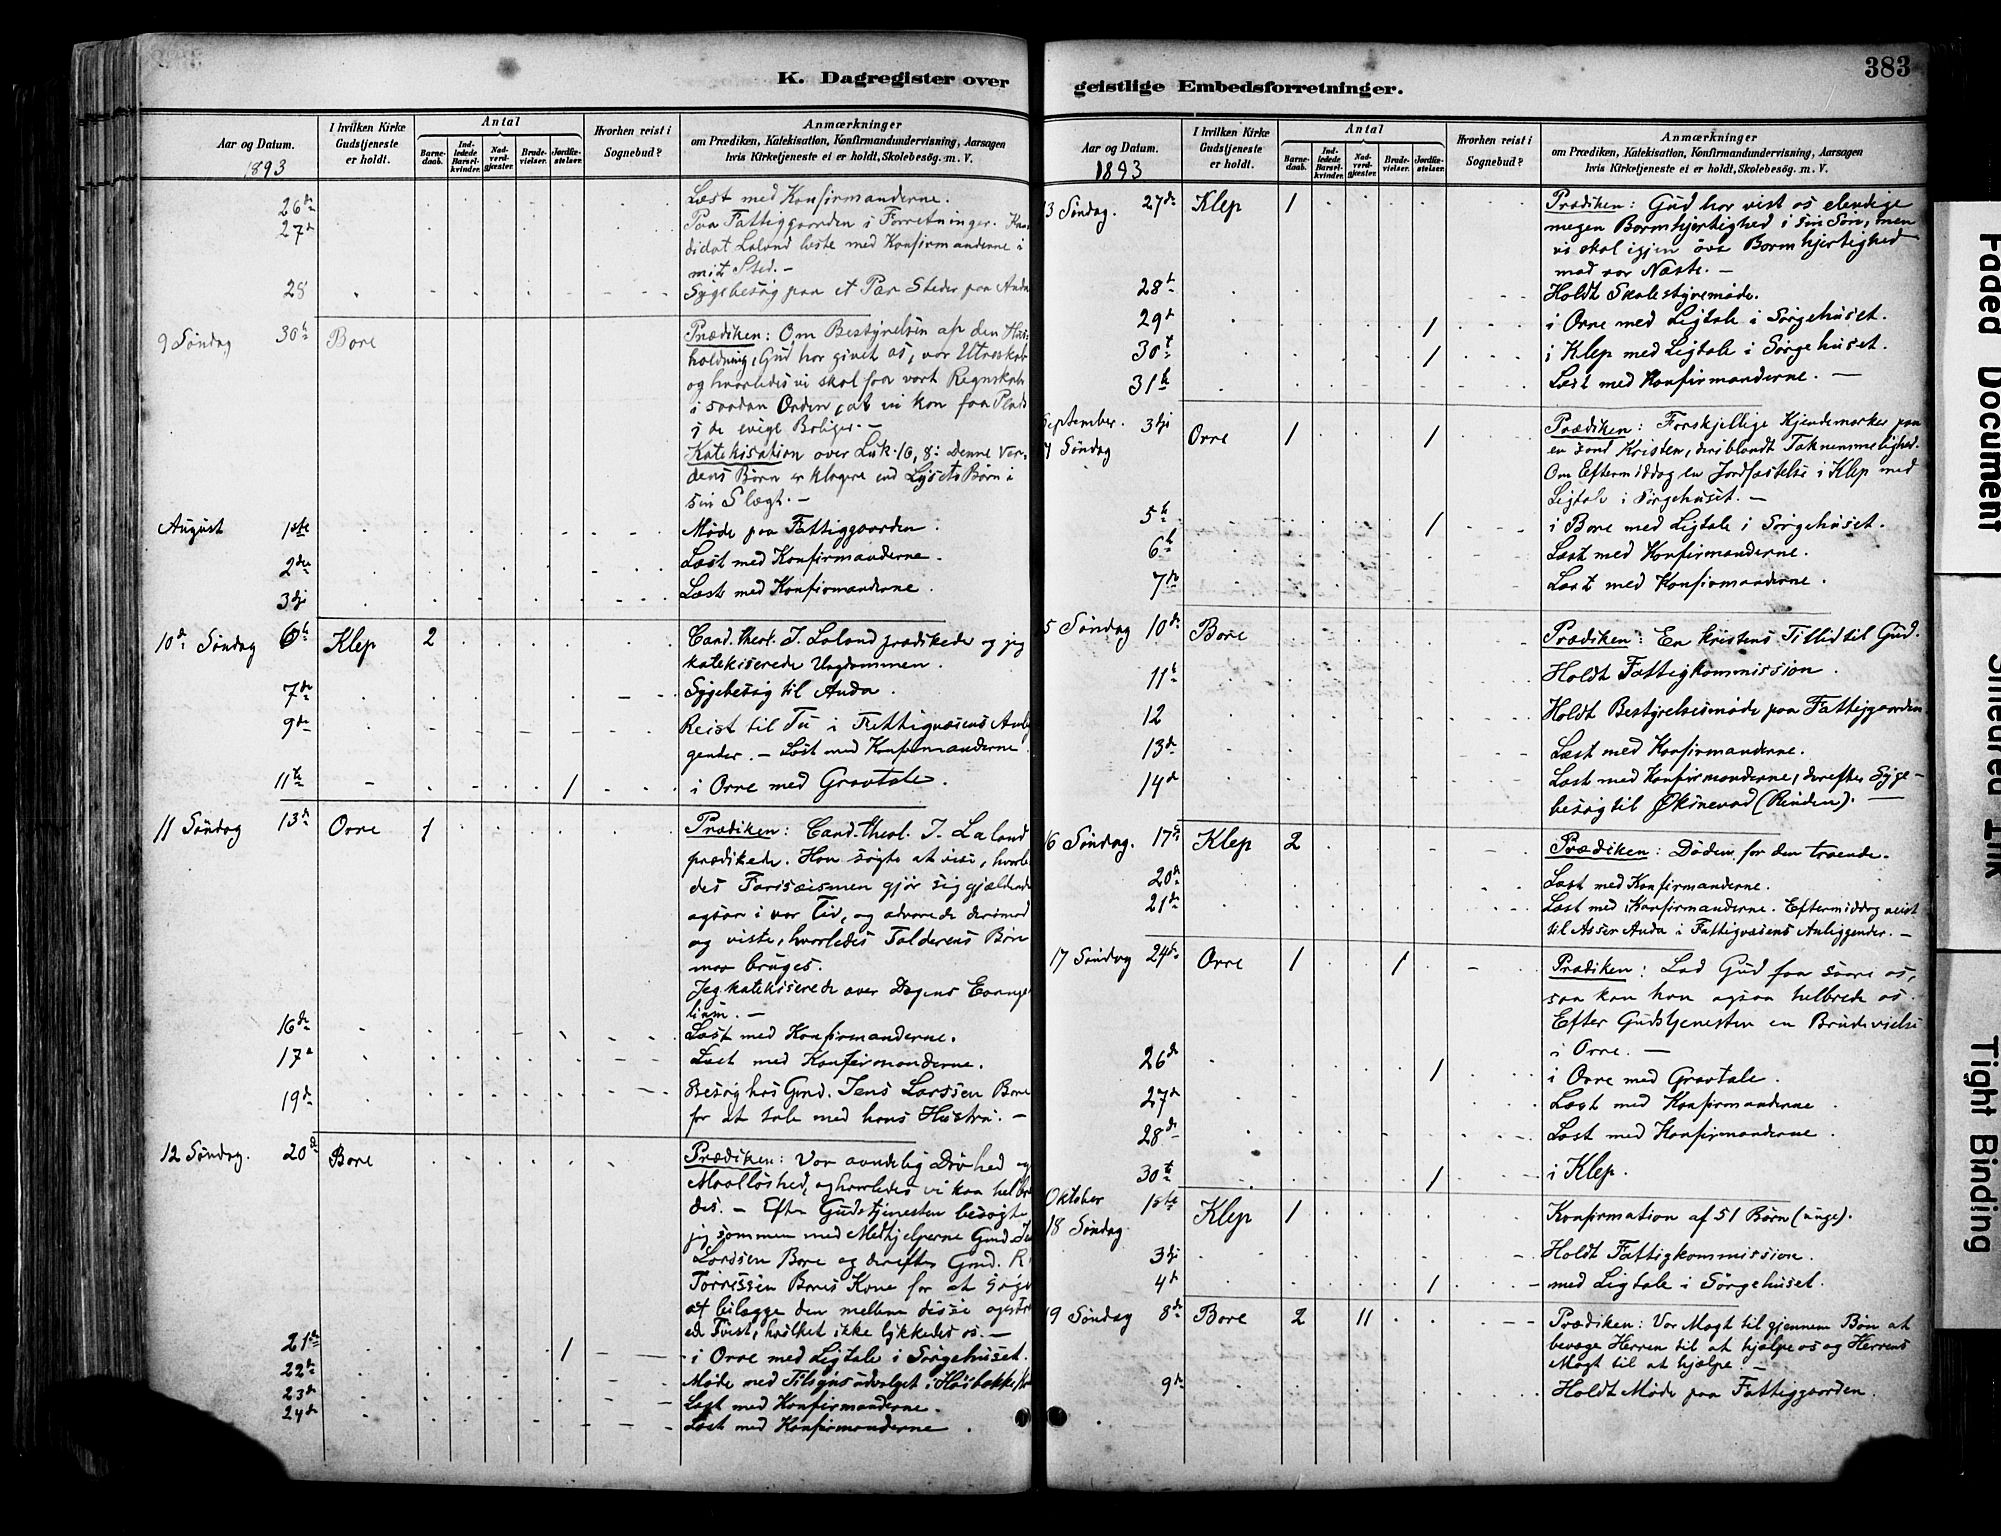 K. Dagregister over
Aar og Datum.
I hvilken Kirke Gudstjeneste er holdt.
Antal
Barnedaab.
Indledede Barselkvinder.
Nadverdgjæster.
Brudevielser.
Jordfæstelser.
Hvorhen reist i Sognebud?
Anmærkninger
om Prædiken, Katekisation, Konfirmandundervisning, Aarsagen
hvis Kirketjeneste ei er holdt, Skolebesøg. m. V.
1893
26de Læst med Konfirmanderne.
27de Paa Fattiggaarden i Forretninger. Kan-
didat Laland læste med Konfirmanderne i
mit Sted. –
28 Sygebesøg paa et Par Steder paa Anda
9 Søndag 30te Bore Prædiken: Om Bestyrelsen af den Hus-
holdning, Gud har givet os, vor Utroskab
og hvorledes vi skal faa vort Regnskab
i saadan Orden, at vi kan faa Plads
i de evige Boliger. –
Katekisation over Luk. 16, 8: Denne Ver-
dens Børn er klogere end Lysets Børn i
sin Slægt. –
August 1ste Møde paa Fattiggaarden.
2den Læst med Konfirmanderne.
3dj Læste med Konfirmanderne.
10de Søndag 6te Klep 2 Cand. theol. J. Laland prædikede og jeg
katekiserede Ungdommen.
7de Sygebesøg til Anda.
9de Reist til Tu i Fattigvæsens Anlig
gender. – Læst med Konfirmanderne
11te 1 i Orre med Gravtale.
11 Søndag 13de Orre 1 Prædiken: Cand. theol. J. Laland
prædikede. Han søgte at vise, hvorle
des Farisæismen gjør sig gjældende
ogsaa i vor Tid, og advarede derimod
og viste, hvorledes Tolderens Bøn
maa bruges.
Jeg katekiserede over Dagens Evange
lium. –
16de Læst med Konfirmanderne.
17de Læst med Konfirmanderne.
19de Besøg hos Gmd. Jens Larssen Bore
for at tale med hans Hustru. –
12 Søndag. 20de Bore Prædiken: Vor aandelig Døvhed og
Maalløshed, og hvorledes vi kan helbre
des. – Efter Gudstjenesten besøgte
jeg sammen med Medhjelperne Gmd. Jens
Larssen Bore og derefter Gmd. R
Torrissen Bores Kone for at søge
at bilægge den mellem disse opstaa
ede Tvist, hvilket ikke lykkedes os. –
21de 1 i Orre med Ligtale i Sørgehuset.
22de Møde med Tilsynsudvalget i
23de Læst med Konfirmanderne.
24de Læst med Konfirmanderne.
geistlige Embedsforretninger.
383
Aar og Datum.
I hvilken Kirke Gudstjeneste er holdt.
Antal
Barnedaab.
Indledede Barselkvinder.
Nadverdgjæster.
Brudevielser.
Jordfæstelser.
Hvorhen reist i Sognebud?
Anmærkninger
om Prædiken, Katekisation, Konfirmandundervisning, Aarsagen
hvis Kirketjeneste ei er holdt, Skolebesøg. m. V.
1893
13 Søndag. 27de Klep 1 Prædiken: Gud har vist os elendige
megen Barmhjertighed i sin Søn, men
vi skal igjen øve Barmhjertighed
mod vor Næste. –
28de Holdt Skolestyremøde.
29de 1 i Orre med Ligtale i Sørgehuset.
30te 1 i Klep med Ligtale i Sørgehuset.
31te Læst med Konfirmanderne. –
September. 3dj
Søndag Orre 1 1 Prædiken: Forskjellige Kjendemærker paa
en sand Kristen, deriblandt Taknemmelighed.
Om Eftermiddag en Jordfæstelse i Klep med
Ligtale i Sørgehuset. –
5te 1 i Bore med Ligtale i Sørgehuset.
6te Læst med Konfirmanderne.
7de Læst med Konfirmanderne.
5 Søndag 10de Bore Prædiken: En kristens Tillid til Gud.
11te Holdt Fattigkommission.
12 Holdt Bestyrelsesmøde paa Fattiggaarden
13de Læst med Konfirmanderne.
14de Læst med Konfirmanderne, derefter Syge-
besøg til (Rinden). –
6 Søndag. 17de Klep 2 Prædiken: Døden for den troende.
20de Læst med Konfirmanderne.
21de Læst med Konfirmanderne. Eftermiddag reist
til Asser Anda i Fattigvæsens Anliggender. –
17 Søndag 24de Orre 1 1 Prædiken: Lad Gud faa saare os,
saa kan han ogsaa helbrede os.
Efter Gudstjenesten en Brudevielse
i Orre. –
26de 1 i Orre med Gravtale.
27de Læst med Konfirmanderne.
28de Læst med Konfirmanderne.
30te 1 i Klep.
Oktober 1ste
18 Søndag Klep 1 Konfirmation af 51 Børn (unge).
3dj Holdt Fattigkommission.
4de 1 med Ligtale i Sørgehuset.
19 Søndag 8de Bore 2 11 Prædiken: Vor Magt til gjennem Bøn at
bevæge Herren til at hjælpe os og Herrens
Magt til at hjælpe. –
9de Holdt Møde paa Fattiggaarden.
Faded Document
Smeared Ink
Tight Binding